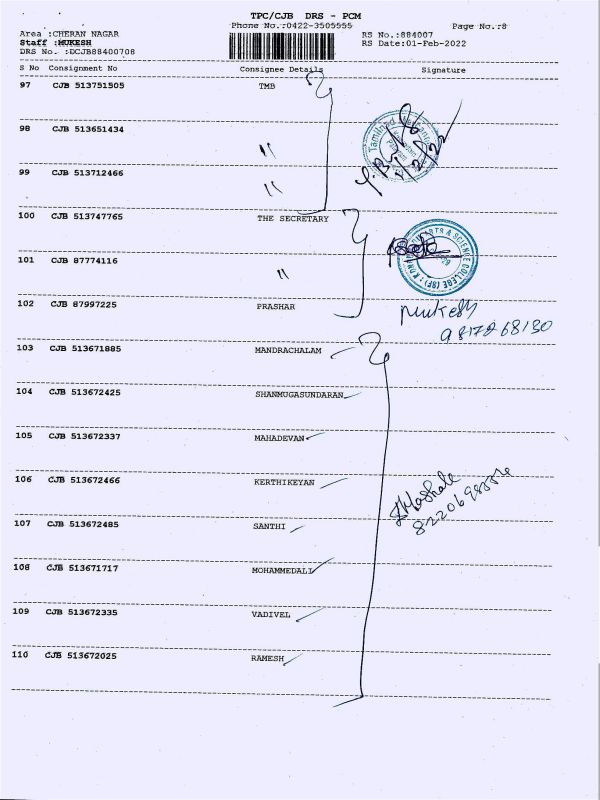 TPC/CJB DRS - PCM
Phone No.:0422-3505555
Page No.:8
Area :CHERAN NAGAR
Staff :MUKESH
DRS No. :DCJB88400708
RS No.:884007
RS Date:01-Feb-2022
S No Consignment No Consignee Details Signature
97 CJB 513751505 TMB
98 CJB 513651434 "
99 CJB 513712466 "
1/2/22
100 CJB 513747765 THE SECRETARY
101 CJB 87774116 "
ARTS & SCIENCE COLLEGE
102 CJB 87997225 PRASHAR
Mukesh
103 CJB 513671885 MANDRACHALAM
104 CJB 513672425 SHANMUGASUNDARAN
105 CJB 513672337 MAHADEVAN
106 CJB 513672466 KERTHIKEYAN
107 CJB 513672485 SANTHI
108 CJB 513671717 MOHAMMEDALI
109 CJB 513672335 VADIVEL
110 CJB 513672025 RAMESH